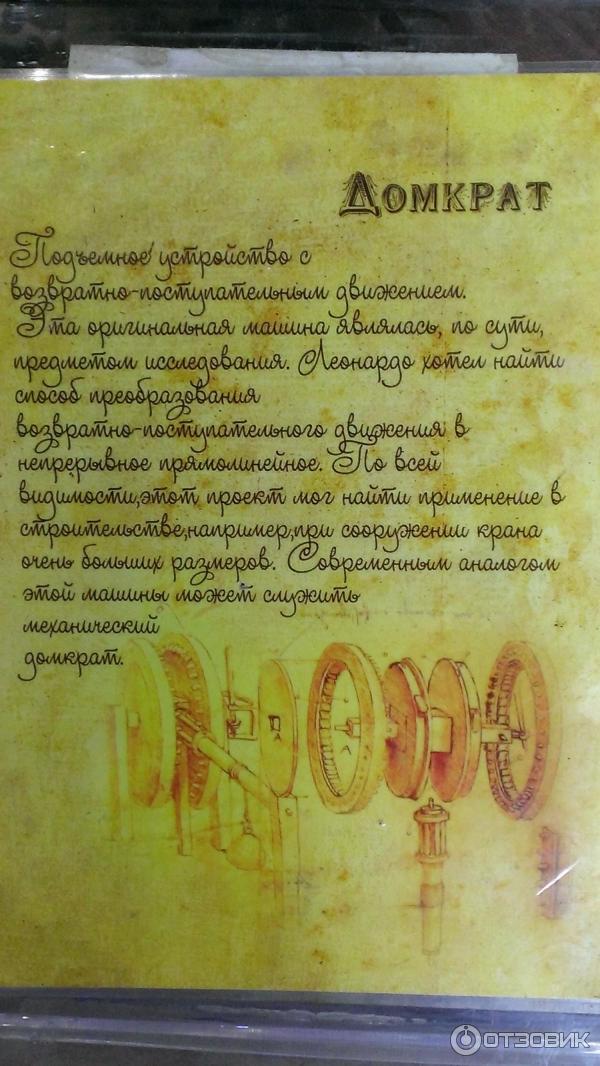 Домкрат
Подъемное устройство с
возвратно-поступательным движением.
Эта оригинальная машина являлась, по сути,
предметом исследования. Леонардо хотел найти
способ преобразования
возвратно-поступательного движения в
непрерывное прямолинейное. По всей
видимости,этот проект мог найти применение в
строительстве,например,при сооружении крана
очень больших размеров. Современным аналогом
этой машины может служить
механический
домкрат.
ОТЗОВИК